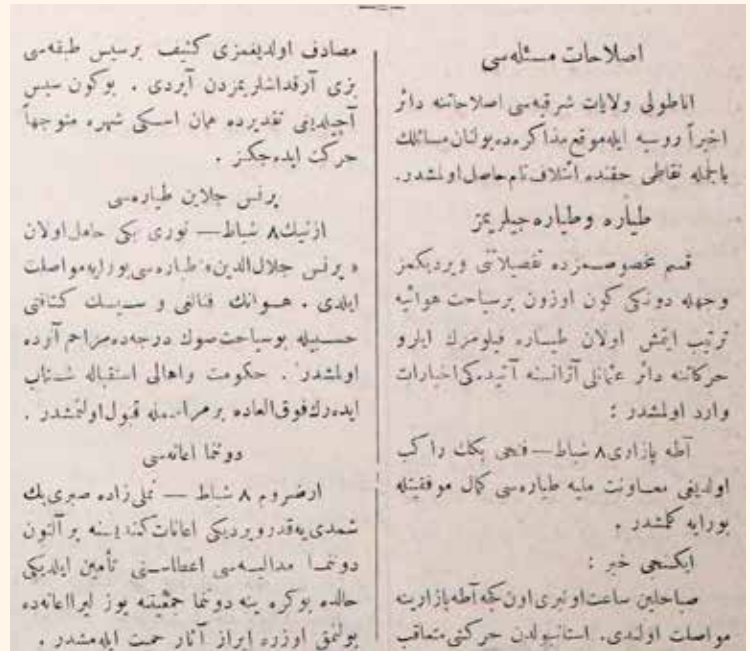 اصلاحات مسئله‌سی
اناطولی ولایات شرقیه‌سی اصلاحاتنه دائر
اخیراً روسیه ایله موقع مذاکره‌ده بولنان مسائلك
بالجمله نقاطی حقنده ائتلاف تام حاصل اولمشدر.
طیاره و طیاره‌جیلریمز
قسم مخصوصمزده تفصیلاتنی ویردیكمز
وجهله دونكی كون اوزون برسیاحت هوائیه
ترتیب ایتمش اولان طیاره فیلومزك ایلرو
حركاتنه دائر عثمانلی آژانسنه آتیده‌كی اخبارات
وارد اولمشدر :
آطه پازاری ٨ شباط — فتحی بكك راكب
اولدیغی معاونت ملیه طیاره‌سی كمال موفقیتله
بورایه كلمشدر .
ایكنجی خبر :
صباحلین ساعت اونبری اون كچه آطه‌پازارینه
مواصلت اولندی. استانبولدن حركتی متعاقب
مصادف اولدیغمزی كثیف برسیس طبقه‌سی
بزی آرقداشلریمزدن آیردی . بوكون سیس
آچیلدیغی تقدیرده همان اسكی شهره متوجهاً
حركت ایده‌جكز .
پرنس جلالین طیاره‌سی
ازنیك ٨ شباط — نوری بكی حامل اولان
« پرنس جلال‌الدین » طیاره‌سی بورایه مواصلت
ایلدی . هوانك فنالغی و سیسك كثافتی
حسبیله بوسیاحت صوك درجه‌ده مزاحم آرده
اولمشدر . حكومت واهالی استقباله شتاب
ایده‌رك فوق‌العاده برمراسمله قبول اولنمشدر .
دوننما اعانه‌سی
ارضروم ٨ شباط — نملی‌زاده صبری بك
شمدی‌یه‌قدر ویردیكی اعانات كندیسنه برآلتون
دوننما مدالیه‌سی اعطاسنی تأمین ایلدیكی
حالده بوكره ینه دوننما جمعیتنه یوز لیرا اعانه‌ده
بولنمق اوزره ابراز آثار حمیت ایله‌مشدر .